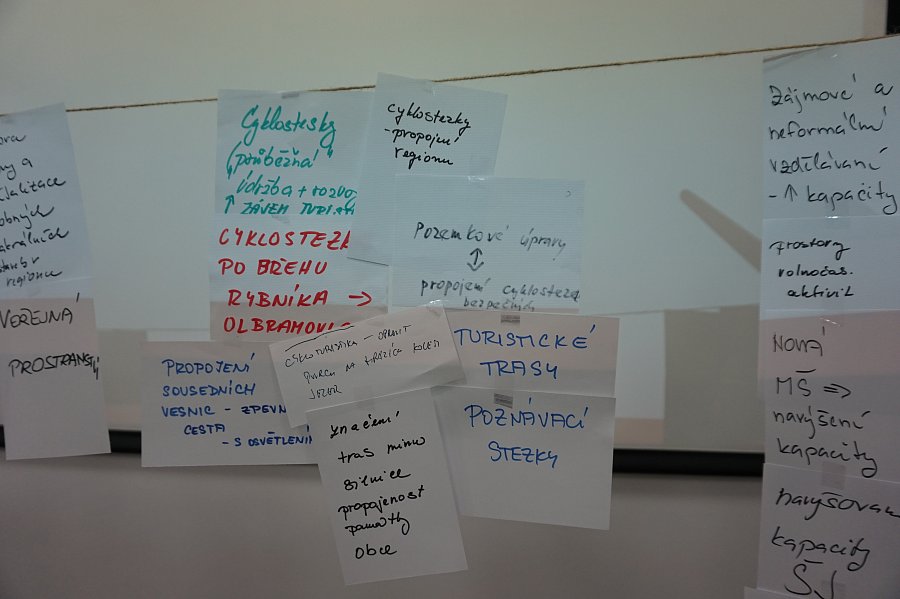 ny a
obných
staveb v
regionu
VEŘEJNÁ
PROSTRANSTV
Cyklostesky
"průběžná"
údržba + rozvoj
↑ ZÁJEM TURI
CYKLOSTEZK
PO BŘEHU
RYBNÍKA →
OLBRAMOV
cyklostezky
- propojení
regionu
Pozemkové úpravy
↕
propojení cyklostezek
bezpečných
PROPOJENÍ
SOUSEDNÍCH
VESNIC - ZPEVN
CESTA
- S OSVĚTLENÍ
CYKLOTURISTIKA - OPRAVIT
KOLEM
JEZER
značení
tras mimo
silnice
propojenost
památky
obce
TURISTICKÉ
TRASY
POZNÁVACÍ
STEZKY
Zájmové a
neformální
vzdělávaní
- ↑ kapacity
prostory
volnočas.
aktivit
NOVÁ
MŠ =>
navýšení
kapacity
navýšovan
kapacity
ŠJ